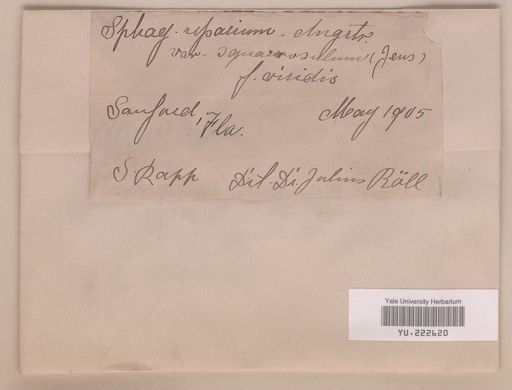 Sphag. riparium. Ångstr.
var. squarrosulum (Jens)
f. viridis
Sanford, Fla. May 1905
S. Rapp Dit. Dr. Julius Röll
Yale University Herbarium
YU.222620